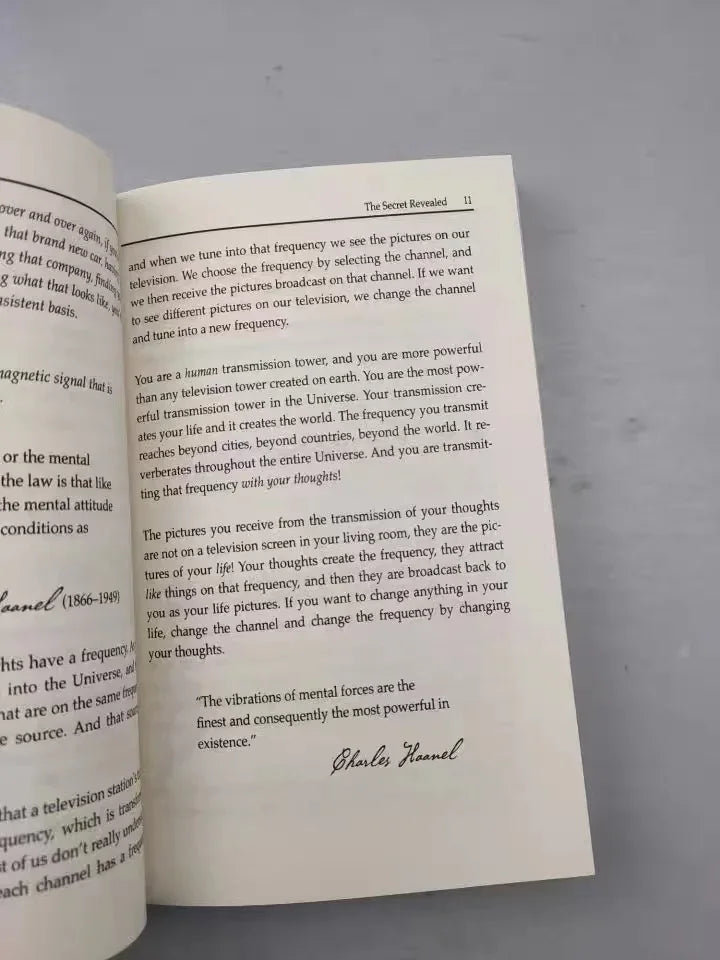 over and over again, if you
that brand new car, having
ng that company, finding
g what that looks like, you
sistent basis.
magnetic signal that is
.
or the mental
the law is that like
the mental attitude
conditions as
Haanel (1866–1949)
hts have a frequency. As
into the Universe, and
hat are on the same frequ
e source. And that sourc
that a television station's
quency, which is transm
st of us don't really under
each channel has a freq
The Secret Revealed 11
and when we tune into that frequency we see the pictures on our
television. We choose the frequency by selecting the channel, and
we then receive the pictures broadcast on that channel. If we want
to see different pictures on our television, we change the channel
and tune into a new frequency.
You are a human transmission tower, and you are more powerful
than any television tower created on earth. You are the most pow-
erful transmission tower in the Universe. Your transmission cre-
ates your life and it creates the world. The frequency you transmit
reaches beyond cities, beyond countries, beyond the world. It re-
verberates throughout the entire Universe. And you are transmit-
ting that frequency with your thoughts!
The pictures you receive from the transmission of your thoughts
are not on a television screen in your living room, they are the pic-
tures of your life! Your thoughts create the frequency, they attract
like things on that frequency, and then they are broadcast back to
you as your life pictures. If you want to change anything in your
life, change the channel and change the frequency by changing
your thoughts.
"The vibrations of mental forces are the
finest and consequently the most powerful in
existence."
Charles Haanel